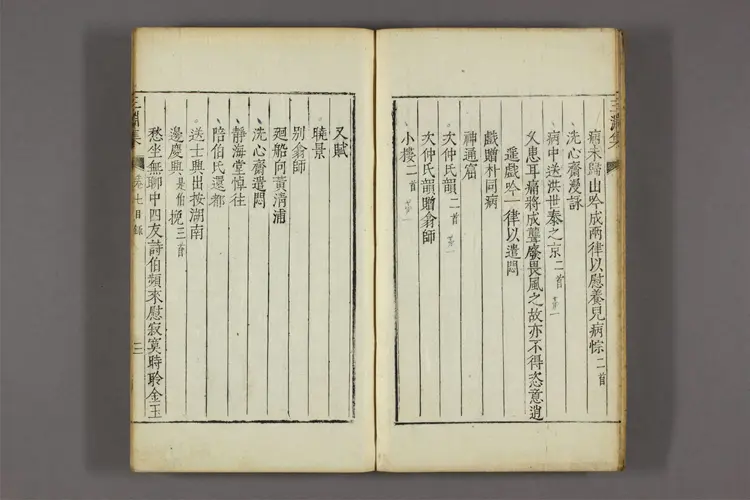 病未歸山吟成兩律以慰養兒病悰二首
洗心齋漫詠
病中送洪世泰之京二首 第一
又患耳痛將成聾廢畏風之故亦不得恣意逍
遥戲吟一律以遣悶
戲贈朴同病
神通窟
次仲氏韻二首 第一
次仲氏韻贈翁師
小樓二首 第一
三淵集
又賦
曉景
別翁師
廻船向黃淸浦
洗心齋遣悶
靜海堂悼往
陪伯氏還都
送士興出按湖南
邊慶興是伯挽三首
愁坐無聊中四友詩伯頻來慰寂寞時聆金玉
三淵集 卷七目錄 二